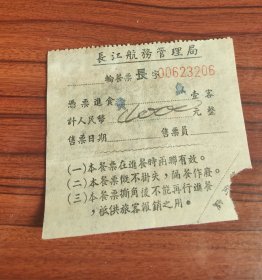 長江航務管理局
輪餐票 長字00623206
憑票進食 壹客
計人民幣 4000 元整
售票日期 售票員
(一)本餐票在進餐時兩聯有效。
(二)本餐票概不掛失，隔餐作廢。
(三)本餐票撕角後不能再行進餐，
祗供旅客報銷之用。